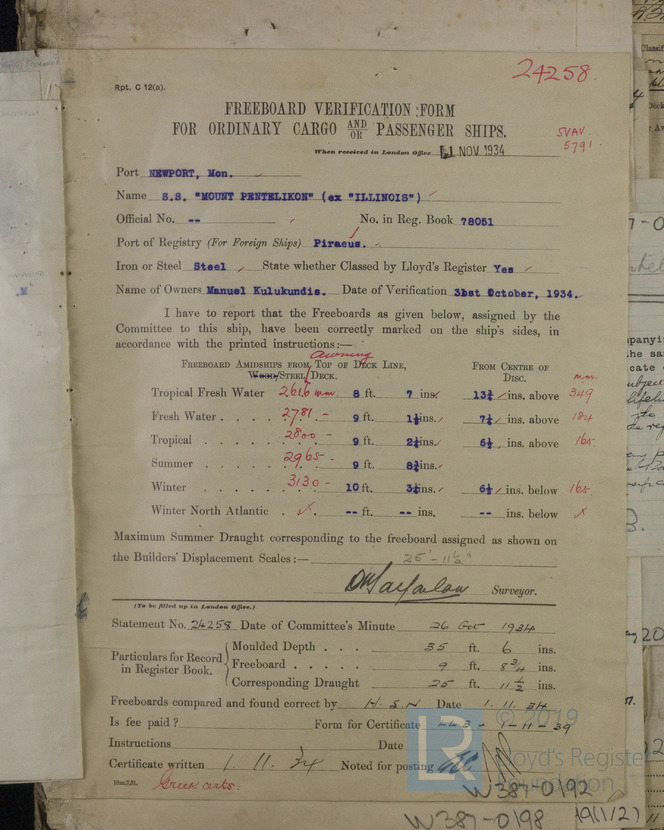 24258.
Rpt. C 12(a).
FREEBOARD VERIFICATION FORM
FOR ORDINARY CARGO AND/OR PASSENGER SHIPS.
5791
When received in London Office 1 NOV 1934
Port NEWPORT, Mon.
Name S.S. "MOUNT PENTELIKON" (ex "ILLINOIS")
Official No. -- No. in Reg. Book 78051
Port of Registry (For Foreign Ships) Piraeus.
Iron or Steel Steel State whether Classed by Lloyd's Register Yes
Name of Owners Manuel Kulukundis. Date of Verification 31st October, 1934.
I have to report that the Freeboards as given below, assigned by the
Committee to this ship, have been correctly marked on the ship's sides, in
accordance with the printed instructions:—
awning
FREEBOARD AMIDSHIPS FROM TOP OF DECK LINE, FROM CENTRE OF
WOOD/STEEL DECK. DISC. mm.
Tropical Fresh Water 2616 mm 8 ft. 7 ins. 13¾ ins. above 349
Fresh Water 2781 - 9 ft. 1½ ins. 7¼ ins. above 184
Tropical 2800 - 9 ft. 2¼ ins. 6½ ins. above 165
Summer 2965 - 9 ft. 8¾ ins.
Winter 3130 - 10 ft. 3¼ ins. 6½ ins. below 165
Winter North Atlantic -- ft. -- ins. -- ins. below
Maximum Summer Draught corresponding to the freeboard assigned as shown on
the Builders' Displacement Scales:— 25' - 11½"
Surveyor.
(To be filled up in London Office.)
Statement No. 24258 Date of Committee's Minute 26 Oct 1934
Particulars for Record in Register Book.
Moulded Depth 35 ft. 6 ins.
Freeboard 9 ft. 8¾ ins.
Corresponding Draught 25 ft. 11½ ins.
Freeboards compared and found correct by H.S.N Date 1.11.34
Is fee paid? Form for Certificate LLB - 1-11-39
Instructions Date
Certificate written 1.11.34 Noted for posting
Greek certs.
LR © 2019
Lloyd's Register
Foundation
W387-0192
W387-0198 19(1/2)